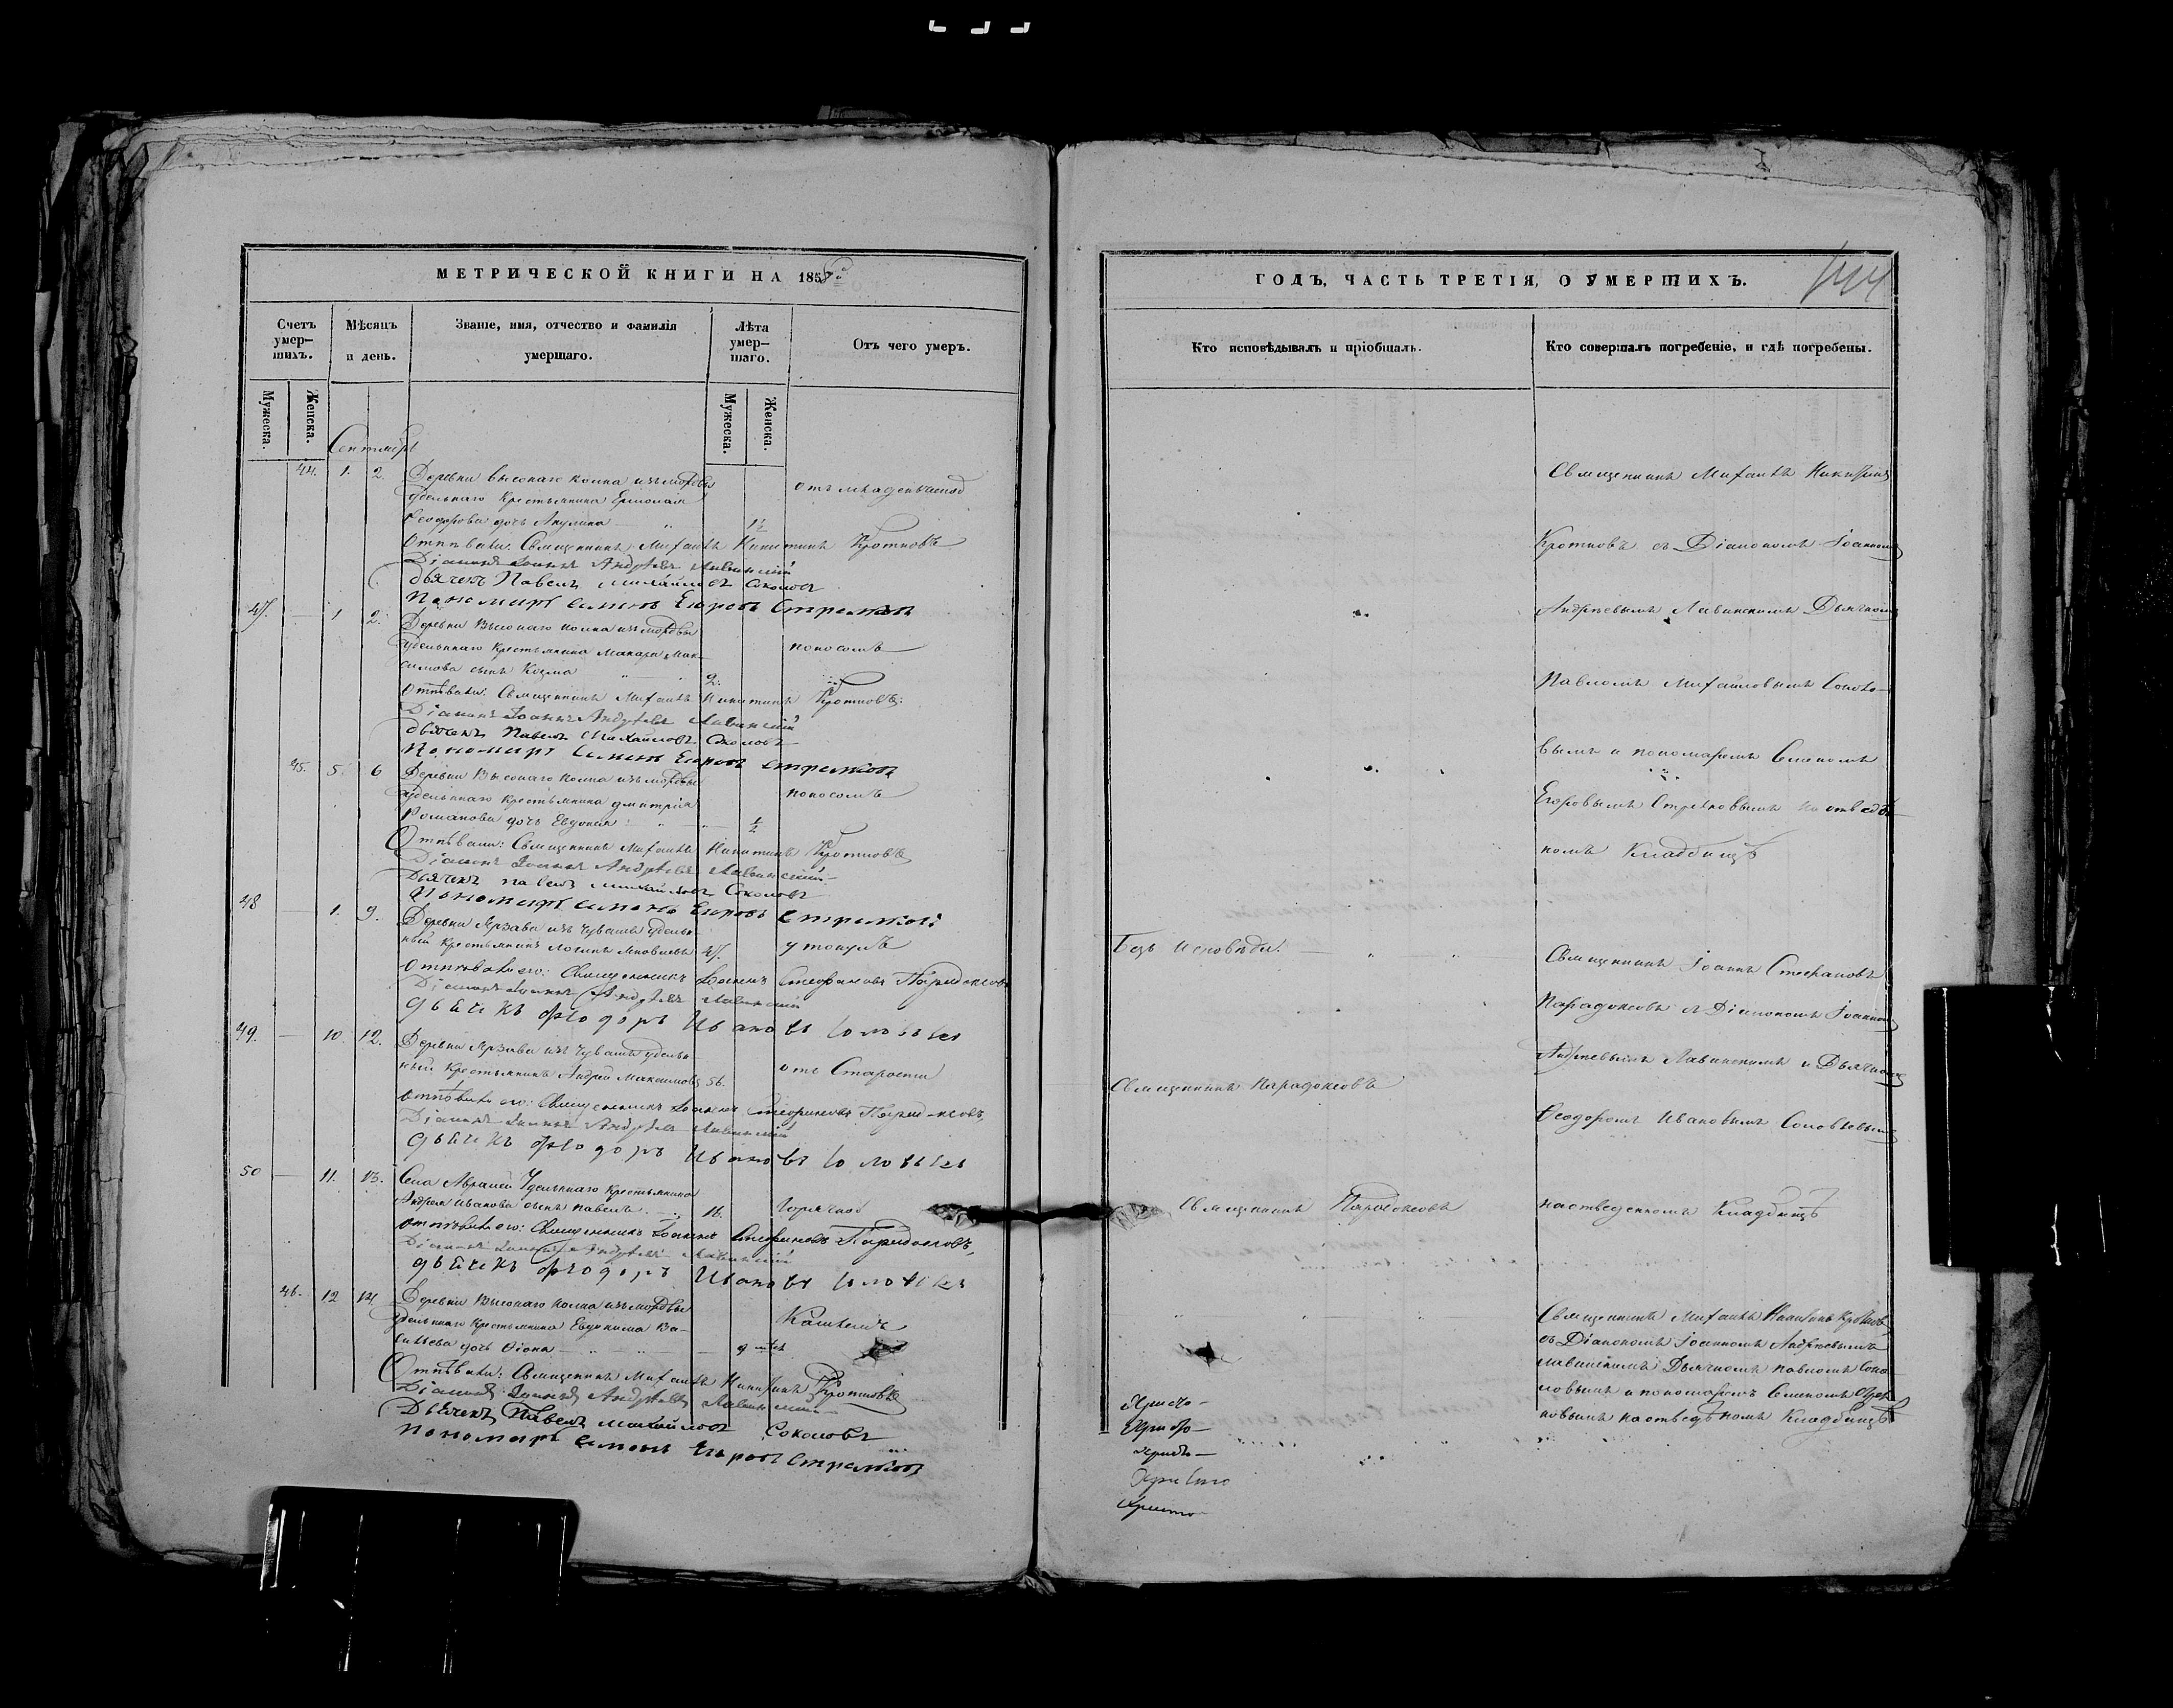 МЕТРИЧЕСКОЙ КНИГИ НА 1858й
Счетъ умер-
шихъ.
Мѣсяцъ
и день.
Званіе, имя, отчество и фамилія
умершаго.
Лѣта
умер-
шаго.
Отъ чего умеръ.
Мужеска.
Женска.
Мужеска.
Женска.
Сентябрь
44. 1. 2. Деревни высокаго колка изъ мордвы
удѣльнаго крестьянина Ермолая
Ѳеодорова дочь Акулина
отъ младенческой
Отпѣвали: Священникъ Михаилъ Никитинъ Кротковъ
Діаконъ Іоаннъ Андреевъ Лавинскій
дьячекъ Павелъ Михайловъ Соколовъ
пономарь Семенъ Егоровъ Стрелковъ
47. — 1 2. Деревни Высокаго колка изъ мордвы
удѣльнаго крестьянина Макара Мак-
симова сынъ Козма 2.
поносомъ
Отпѣвали: Священникъ Михаилъ Никитинъ Кротковъ:
Діаконъ Іоаннъ Андреевъ Лавинскій
дьячекъ Павелъ Михайловъ Соколовъ
Пономарь Семенъ Егоровъ Стрелковъ
45. 5 6 Деревни Высокаго колка изъ мордвы
удѣльнаго крестьянина Дмитрія
Романова дочь Евдокія ½
поносомъ
Отпѣвали: Священникъ Михаилъ Никитинъ Кротковъ
Діаконъ Іоаннъ Андреевъ Лавинскій
Дьячекъ Павелъ Михайловъ Соколовъ
Пономарь Семенъ Егоровъ Стрелковъ
48 — 1. 9. Деревни Арзава изъ Чувашъ удѣль-
ный крестьянинъ Логинъ Яковлевъ 47.
утонулъ
Отпѣвали его: Священникъ Іоаннъ Стефановъ Парадоксовъ
Діаконъ Іоаннъ Андреевъ Лавинскій
дьячекъ Ѳеодоръ Ивановъ Соловьев
49. — 10. 12. Деревни Арзава изъ Чувашъ удѣль-
ный крестьянинъ Андрей Максимовъ 56.
отъ Старости
Отпѣвали его: Священникъ Іоаннъ Стефановъ Парадоксовъ,
Діаконъ Іоаннъ Андреевъ Лавинскій
дьячекъ Ѳеодоръ Ивановъ Соловьев
50 — 11. 13. Села Абрамей Удѣльнаго крестьянина
Андрея Иванова сынъ Павелъ 16.
горячкой
Отпѣвали его: Священникъ Іоаннъ Стефановъ Парадоксовъ,
Діаконъ Андреевъ Лавинскій
дьячекъ Ѳеодоръ Ивановъ Соловьев
46. 12 14. Деревни Высокаго колка изъ мордвы
удѣльнаго крестьянина Евдокима Ва-
сильева дочь Ѳіона
Кашлемъ
Отпѣвали: Священникъ Михаилъ Никитинъ Кротковъ
Діаконъ Іоаннъ Андреевъ Лавинскій
Дьячекъ Павелъ Михайловъ Соколовъ
пономарь Семенъ Егоровъ Стрелковъ
ГОДЪ, ЧАСТЬ ТРЕТІЯ, О УМЕРШИХЪ.
144
Кто исповѣдывалъ и пріобщалъ.
Кто совершалъ погребеніе, и гдѣ погребены.
Священникъ Михаилъ Никитинъ
Кротковъ съ Діакономъ Іоанномъ
Андреевымъ Лавинскимъ Дьячкомъ
Павломъ Михайловымъ Соколо-
вымъ и пономаремъ Семеномъ
Егоровымъ Стрелковымъ на отведен-
номъ Кладбищѣ
Безъ исповѣди.
Священникъ Іоаннъ Стефановъ
Парадоксовъ съ Діакономъ Іоанномъ
Андреевымъ Лавинскимъ и Дьячкомъ
Священникъ Парадоксовъ
Ѳеодоромъ Ивановымъ Соловьевымъ
Священникъ Парадоксовъ
на отведенномъ Кладбищѣ
Священникъ Михаилъ Никитинъ Кротковъ,
съ Діакономъ Іоанномъ Андреевымъ
Лавинскимъ Дьячкомъ Павломъ Соко-
ловымъ и пономаремъ Семеномъ Стрел-
ковымъ на отведенномъ Кладбищѣ